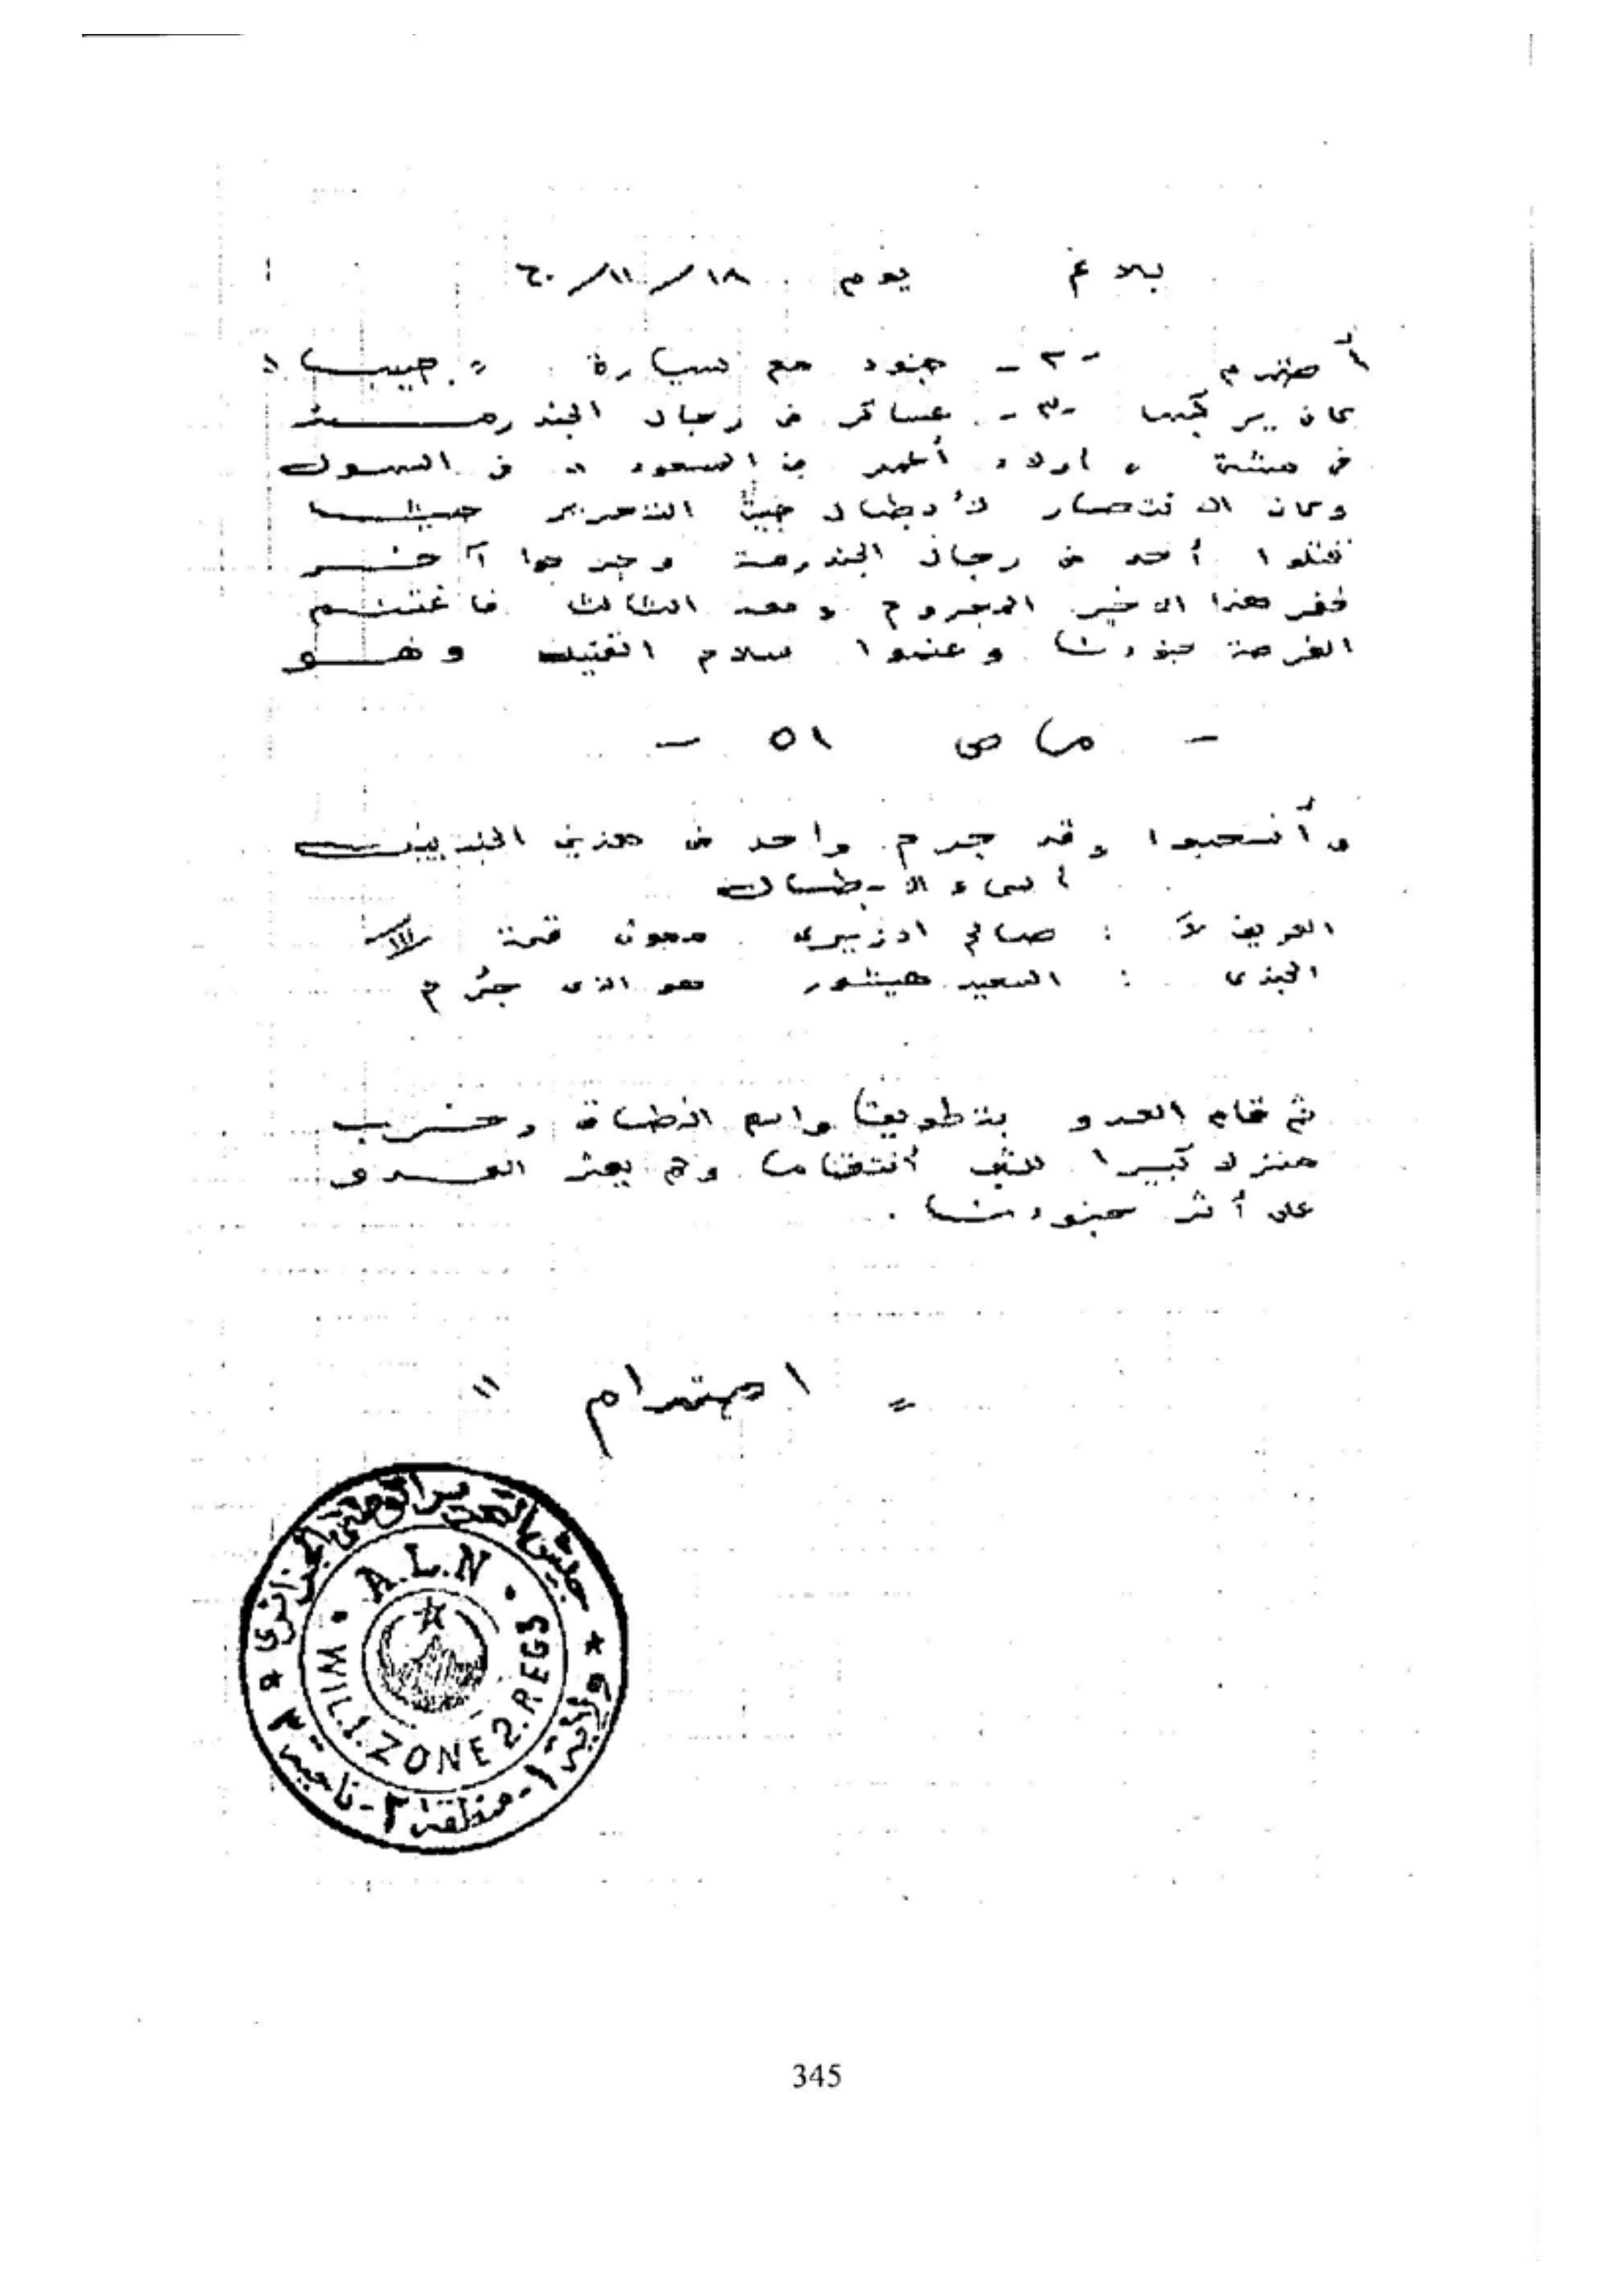 بلاغ يوم ١٨/١١/٦٠
أصتدم -٢- جنود مع سيارة " جيب "
كان يركبها -٣- عساكر من رجال الجندرمة
في مشتة " اولاد أحمد بن السعود " في السوق
وكان الانتصار لأبطال جيش التحرير حيث
قتلوا أحد من رجال الجندرمة وجرحوا آخر
ففر هذا الاخير المجروح ومعه الثالث فاغتنم
الفرصة جنودنا وغنموا سلاح القتيل وهو
- ماص ٥١ -
وأنسحبوا وقد جرح واحد من هذين الجنديين
أسماء الأبطال
العريف لاَ : صالح ادزيري معون قسمة III
الجندي : السعيد هينشور هو الذي جرح
ثم قام العدو بتطويق واسع النطاق وخرب
منزلا كبيرا للشعب أنتقاما ولم يعثر العدو
على أثر جنودنا .
" احترام "
جيش التحرير الوطني الجزائري
A.L.N
WIL.1.ZONE 2.REG3
ولاية ١ - منطقة ٢ - ناحية ٣
345